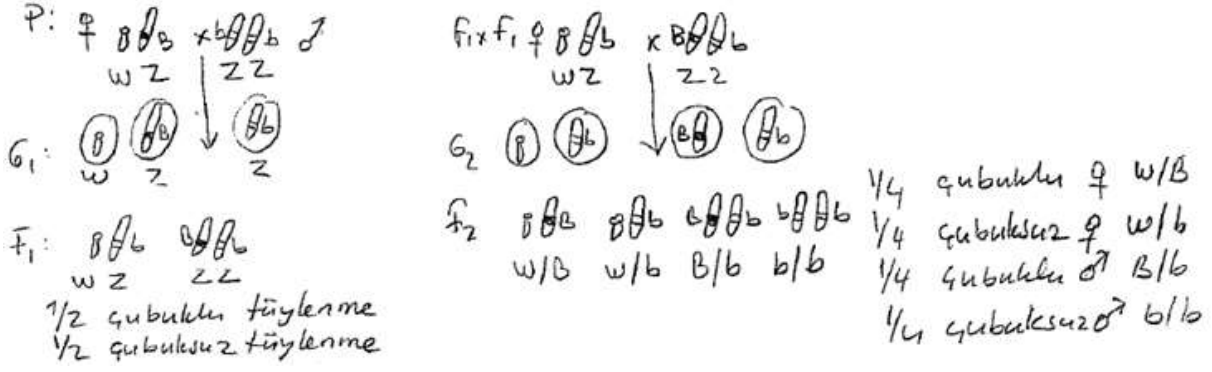 P: ♀ B x b b ♂
W Z Z Z
G₁: B b
W Z Z
F₁: b B b
W Z Z Z
1/2 çubuklu tüylenme
1/2 çubuksuz tüylenme
F₁xF₁ ♀ b x B b
W Z Z Z
G₂ b B b
F₂ B b B b b b
W/B W/b B/b b/b
1/4 çubuklu ♀ W/B
1/4 çubuksuz ♀ W/b
1/4 çubuklu ♂ B/b
1/4 çubuksuz ♂ b/b